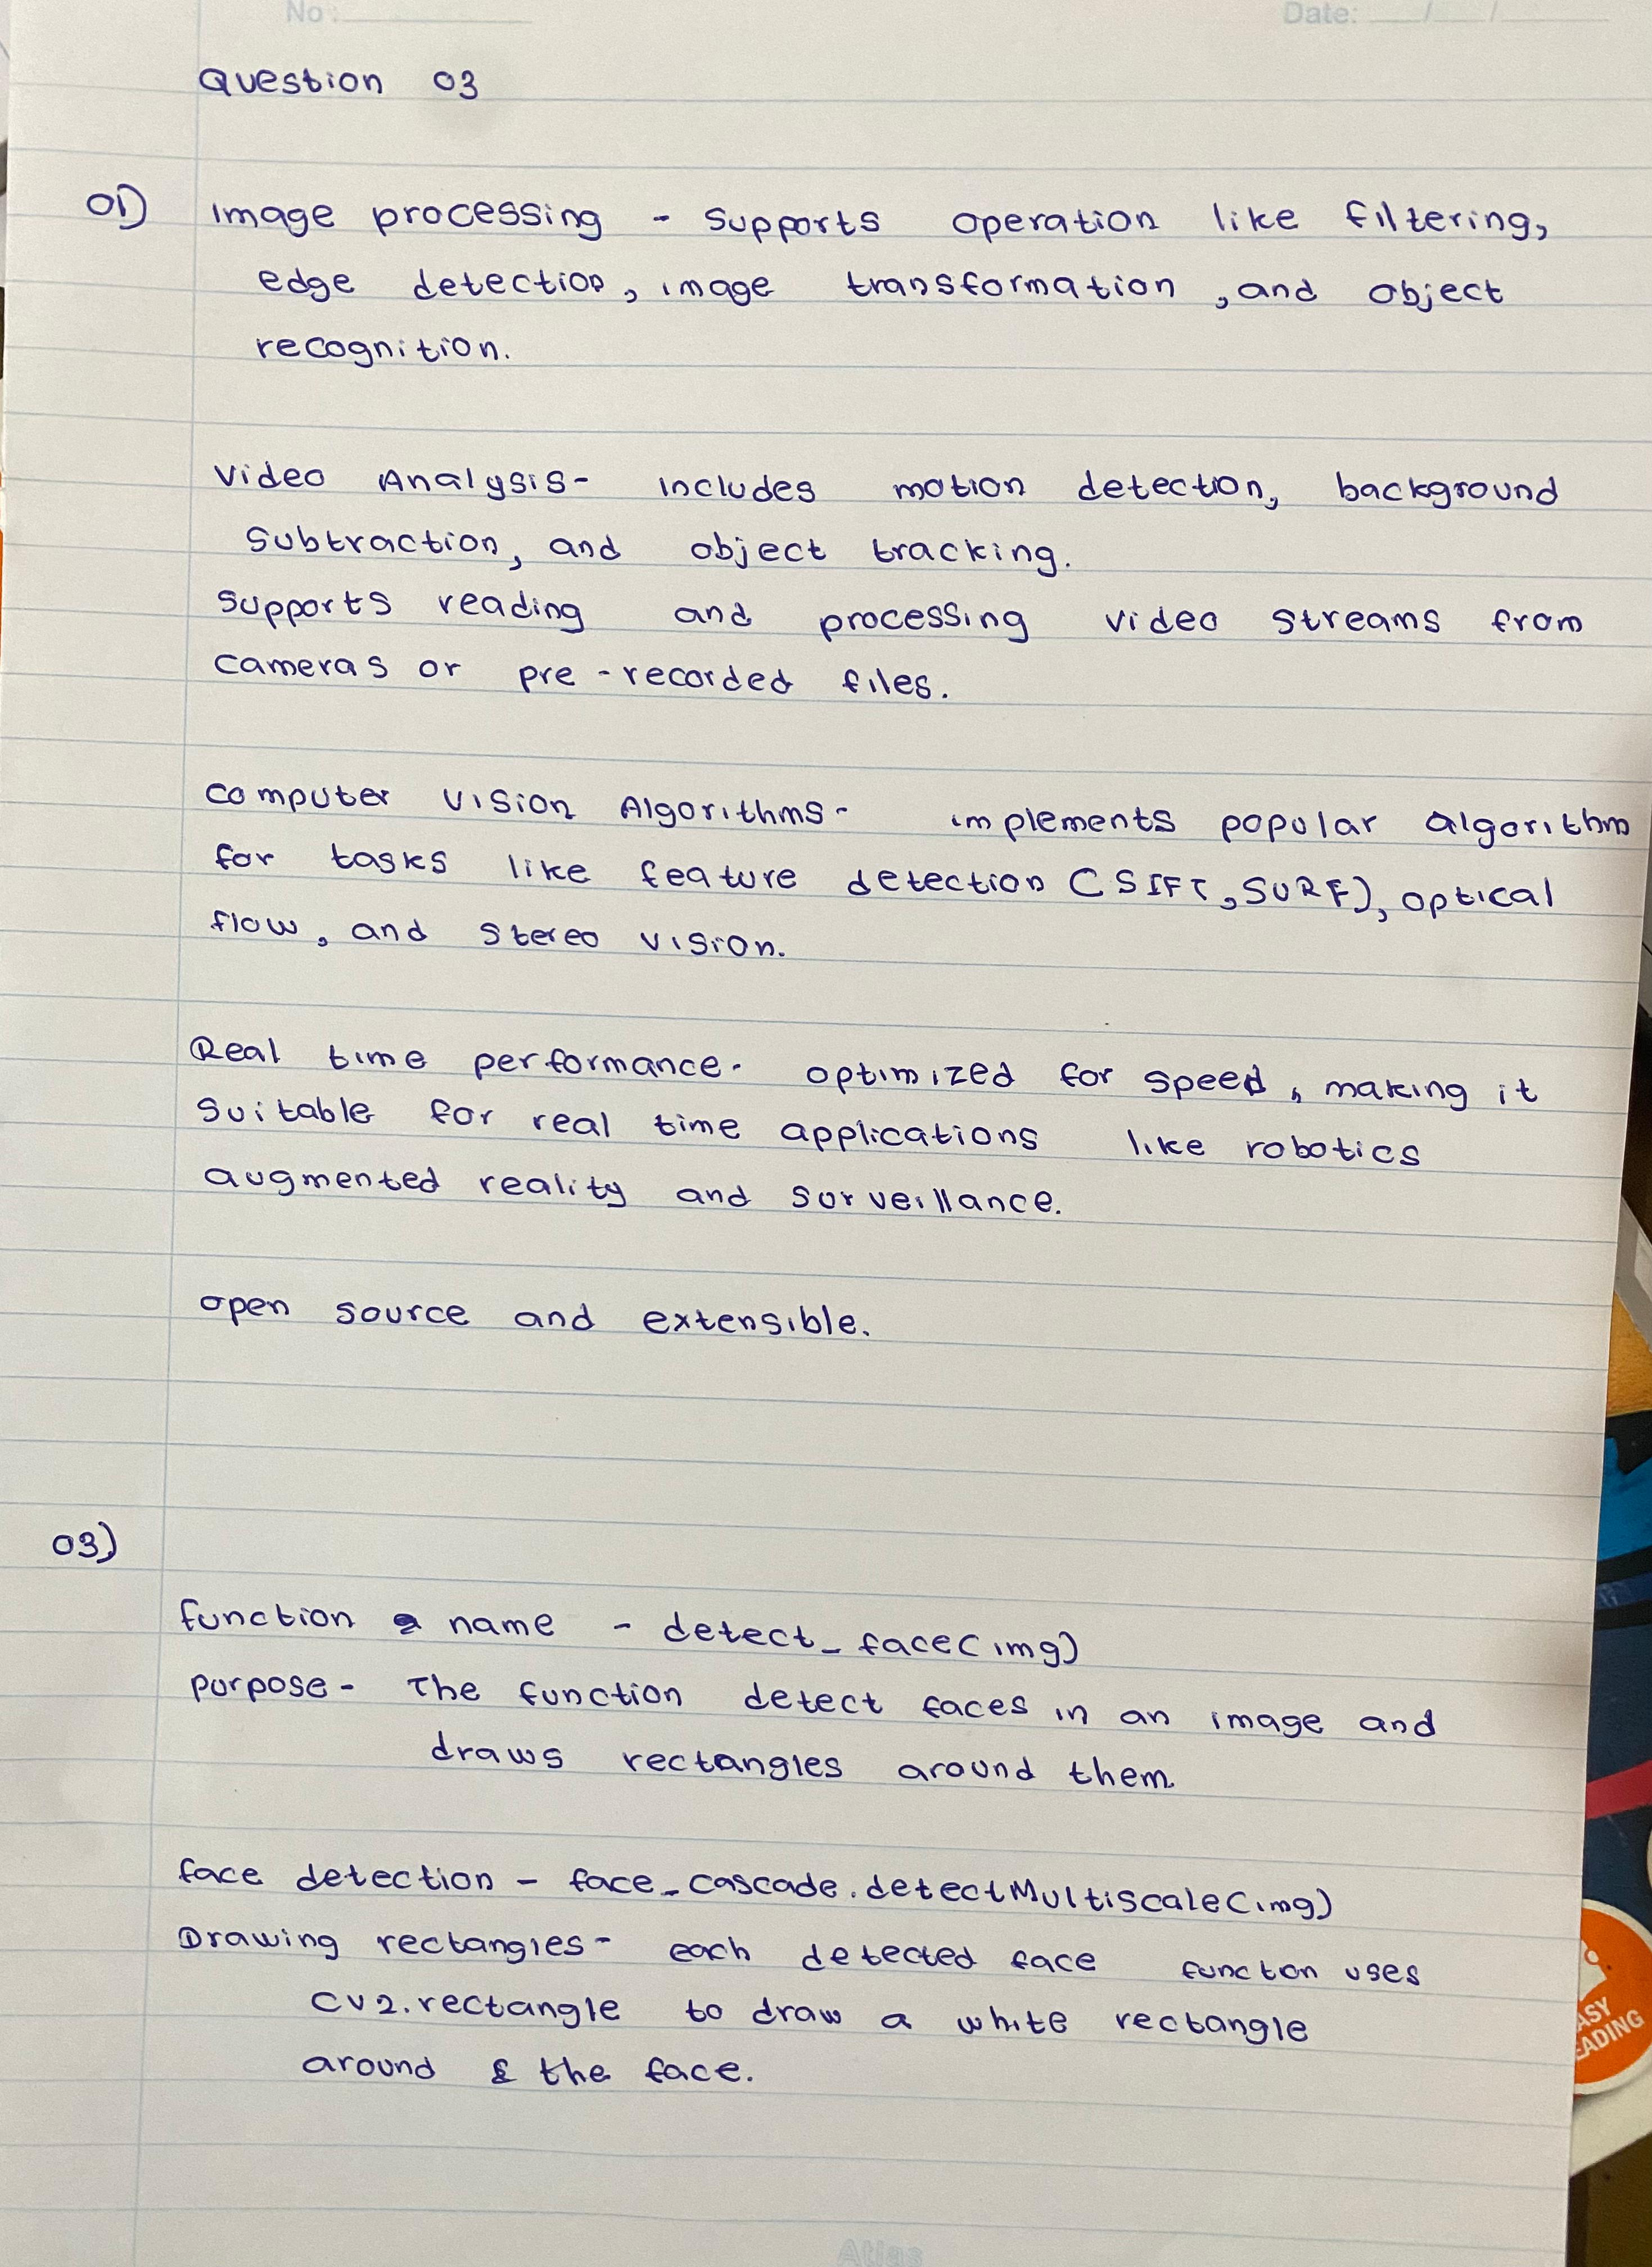 No :
Date: / /
Question 03
01) Image processing - Supports operation like filtering,
edge detection, image transformation, and object
recognition.
Video Analysis- includes motion detection, background
Subtraction, and object tracking.
Supports reading and processing video streams from
cameras or pre-recorded files.
Computer Vision Algorithms- implements popular algorithm
for tasks like feature detection (SIFT, SURF), optical
flow, and stereo vision.
Real time performance- optimized for speed, making it
suitable for real time applications like robotics
augmented reality and surveillance.
open source and extensible.
03)
function name - detect_face(img)
purpose- The function detect faces in an image and
draws rectangles around them
face detection - face_cascade.detectMultiscale(img)
Drawing rectangles- each detected face function uses
cv2.rectangle to draw a white rectangle
around the face.
Atlas